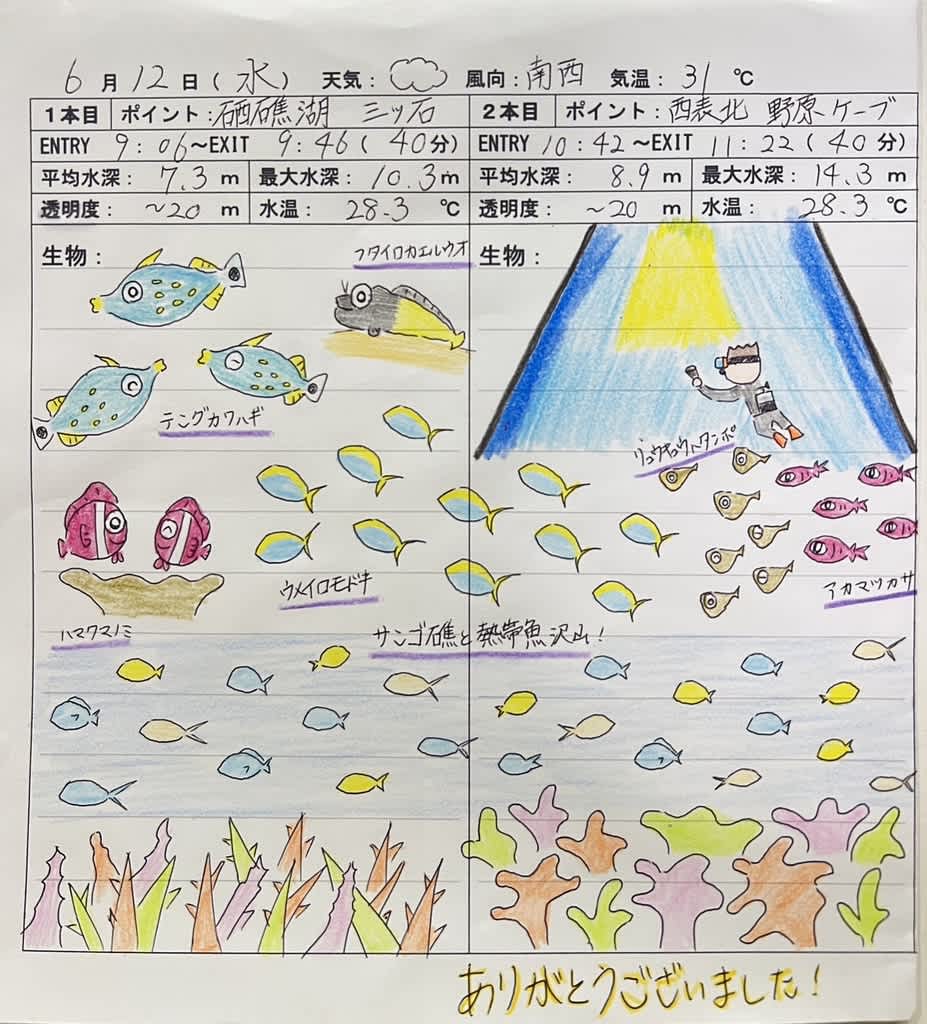 6月12日(水) 天気: 風向:南西 気温:31℃
1本目 ポイント:石西礁湖 三ッ石
ENTRY 9:06~EXIT 9:46(40分)
平均水深:7.3m 最大水深:10.3m
透明度:~20m 水温:28.3℃
生物:
フタイロカエルウオ
テングカワハギ
ウメイロモドキ
ハマクマノミ
2本目 ポイント:西表北 野原ケーブ
ENTRY 10:42~EXIT 11:22(40分)
平均水深:8.9m 最大水深:14.3m
透明度:~20m 水温:28.3℃
生物:
リュウキュウハタンポ
アカマツカサ
サンゴ礁と熱帯魚沢山!
ありがとうございました!